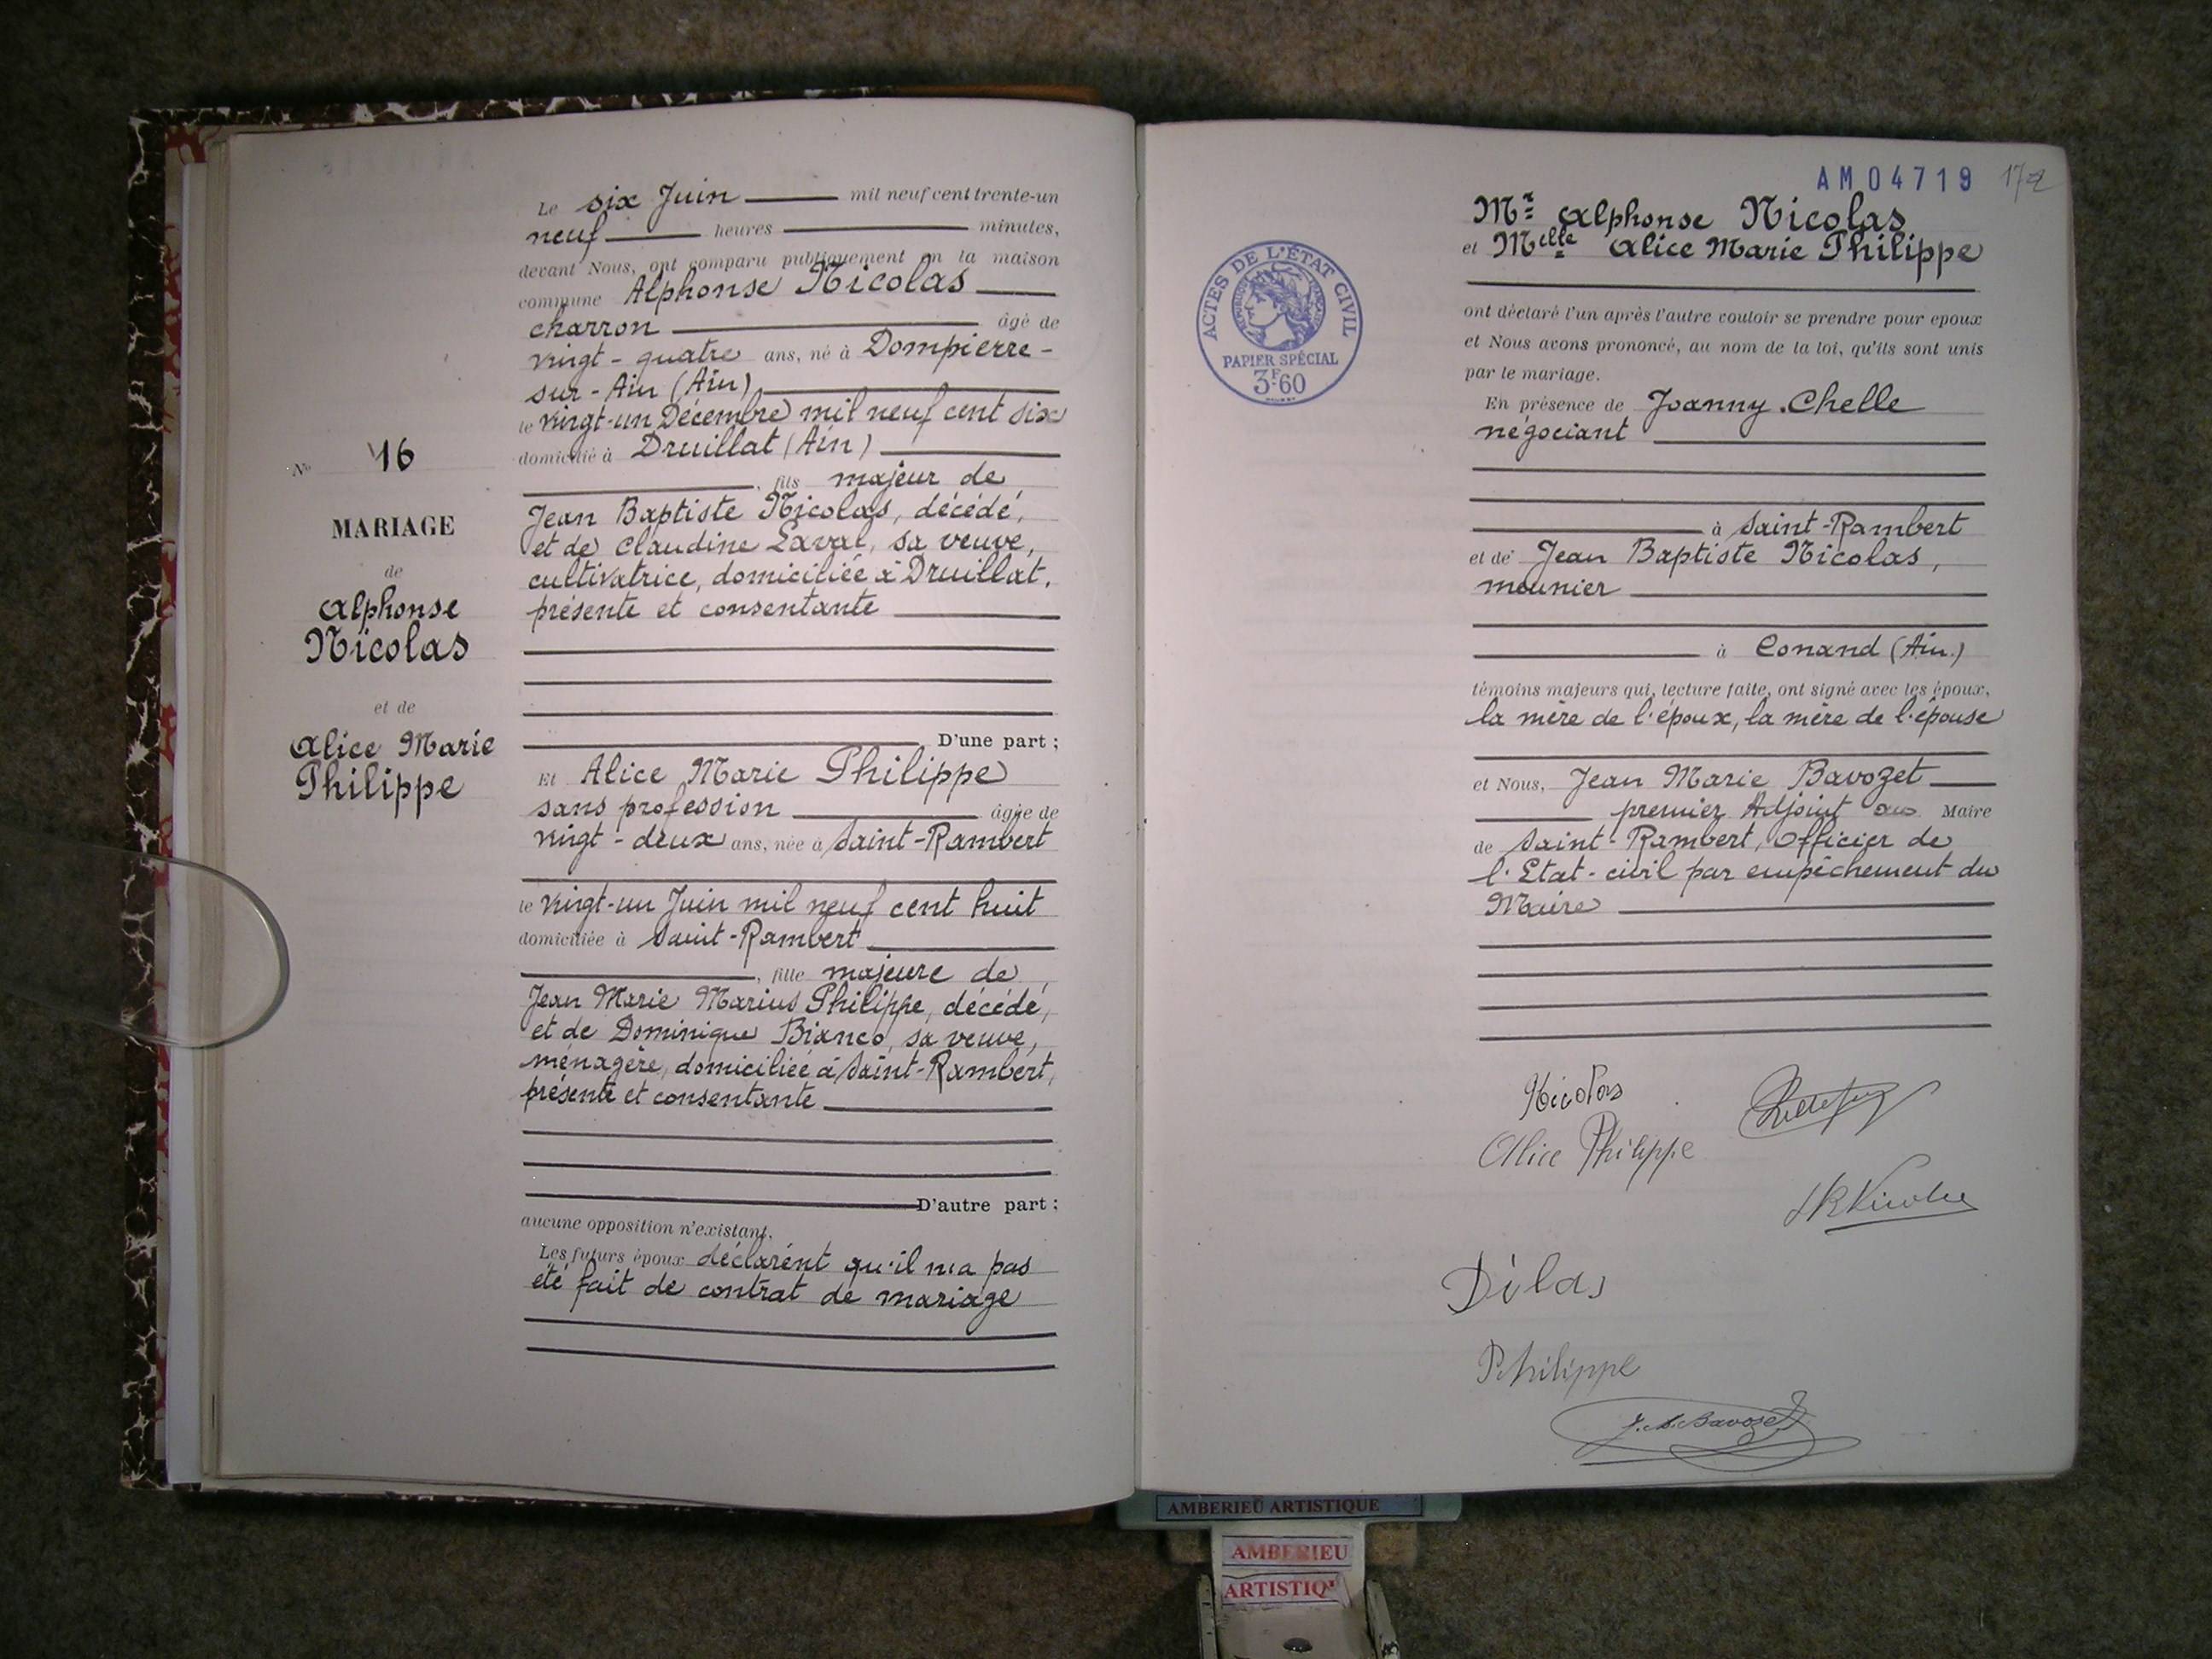 Le six Juin mil neuf cent trente-un
neuf heures minutes,
devant Nous, ont comparu publiquement en la maison
commune Alphonse Nicolas
charron âgé de
vingt-quatre ans, né à Dompierre-
sur-Ain (Ain)
le vingt-un Décembre mil neuf cent six
domicilié à Druillat (Ain)
, fils majeur de
Jean Baptiste Nicolas, décédé,
et de Claudine Laval, sa veuve,
cultivatrice, domiciliée à Druillat,
présente et consentante
D'une part ;
Et Alice Marie Philippe
sans profession âgée de
vingt-deux ans, née à Saint-Rambert
le vingt-un Juin mil neuf cent huit
domiciliée à Saint-Rambert
, fille majeure de
Jean Marie Marius Philippe, décédé,
et de Dominique Bianco, sa veuve,
ménagère, domiciliée à Saint-Rambert,
présente et consentante
D'autre part ;
aucune opposition n'existant.
Les futurs époux déclarent qu'il n'a pas
été fait de contrat de mariage
No 16
MARIAGE
de
Alphonse
Nicolas
et de
Alice Marie
Philippe
AM04719 172
Mr Alphonse Nicolas
et Melle Alice Marie Philippe
ont déclaré l'un après l'autre vouloir se prendre pour époux
et Nous avons prononcé, au nom de la loi, qu'ils sont unis
par le mariage.
En présence de Joanny Chelle
négociant
à Saint-Rambert
et de Jean Baptiste Nicolas,
meunier
à Conand (Ain)
témoins majeurs qui, lecture faite, ont signé avec les époux,
la mère de l'époux, la mère de l'épouse
et Nous, Jean Marie Bavozet
premier Adjoint au Maire
de Saint-Rambert, Officier de
l'Etat-civil par empêchement du
Maire
ACTES DE L'ÉTAT CIVIL
RÉPUBLIQUE FRANÇAISE
PAPIER SPÉCIAL
3F60
Nicolas
Alice Philippe
Philippe
AMBERIEU ARTISTIQUE
AMBERIEU
ARTISTIQ